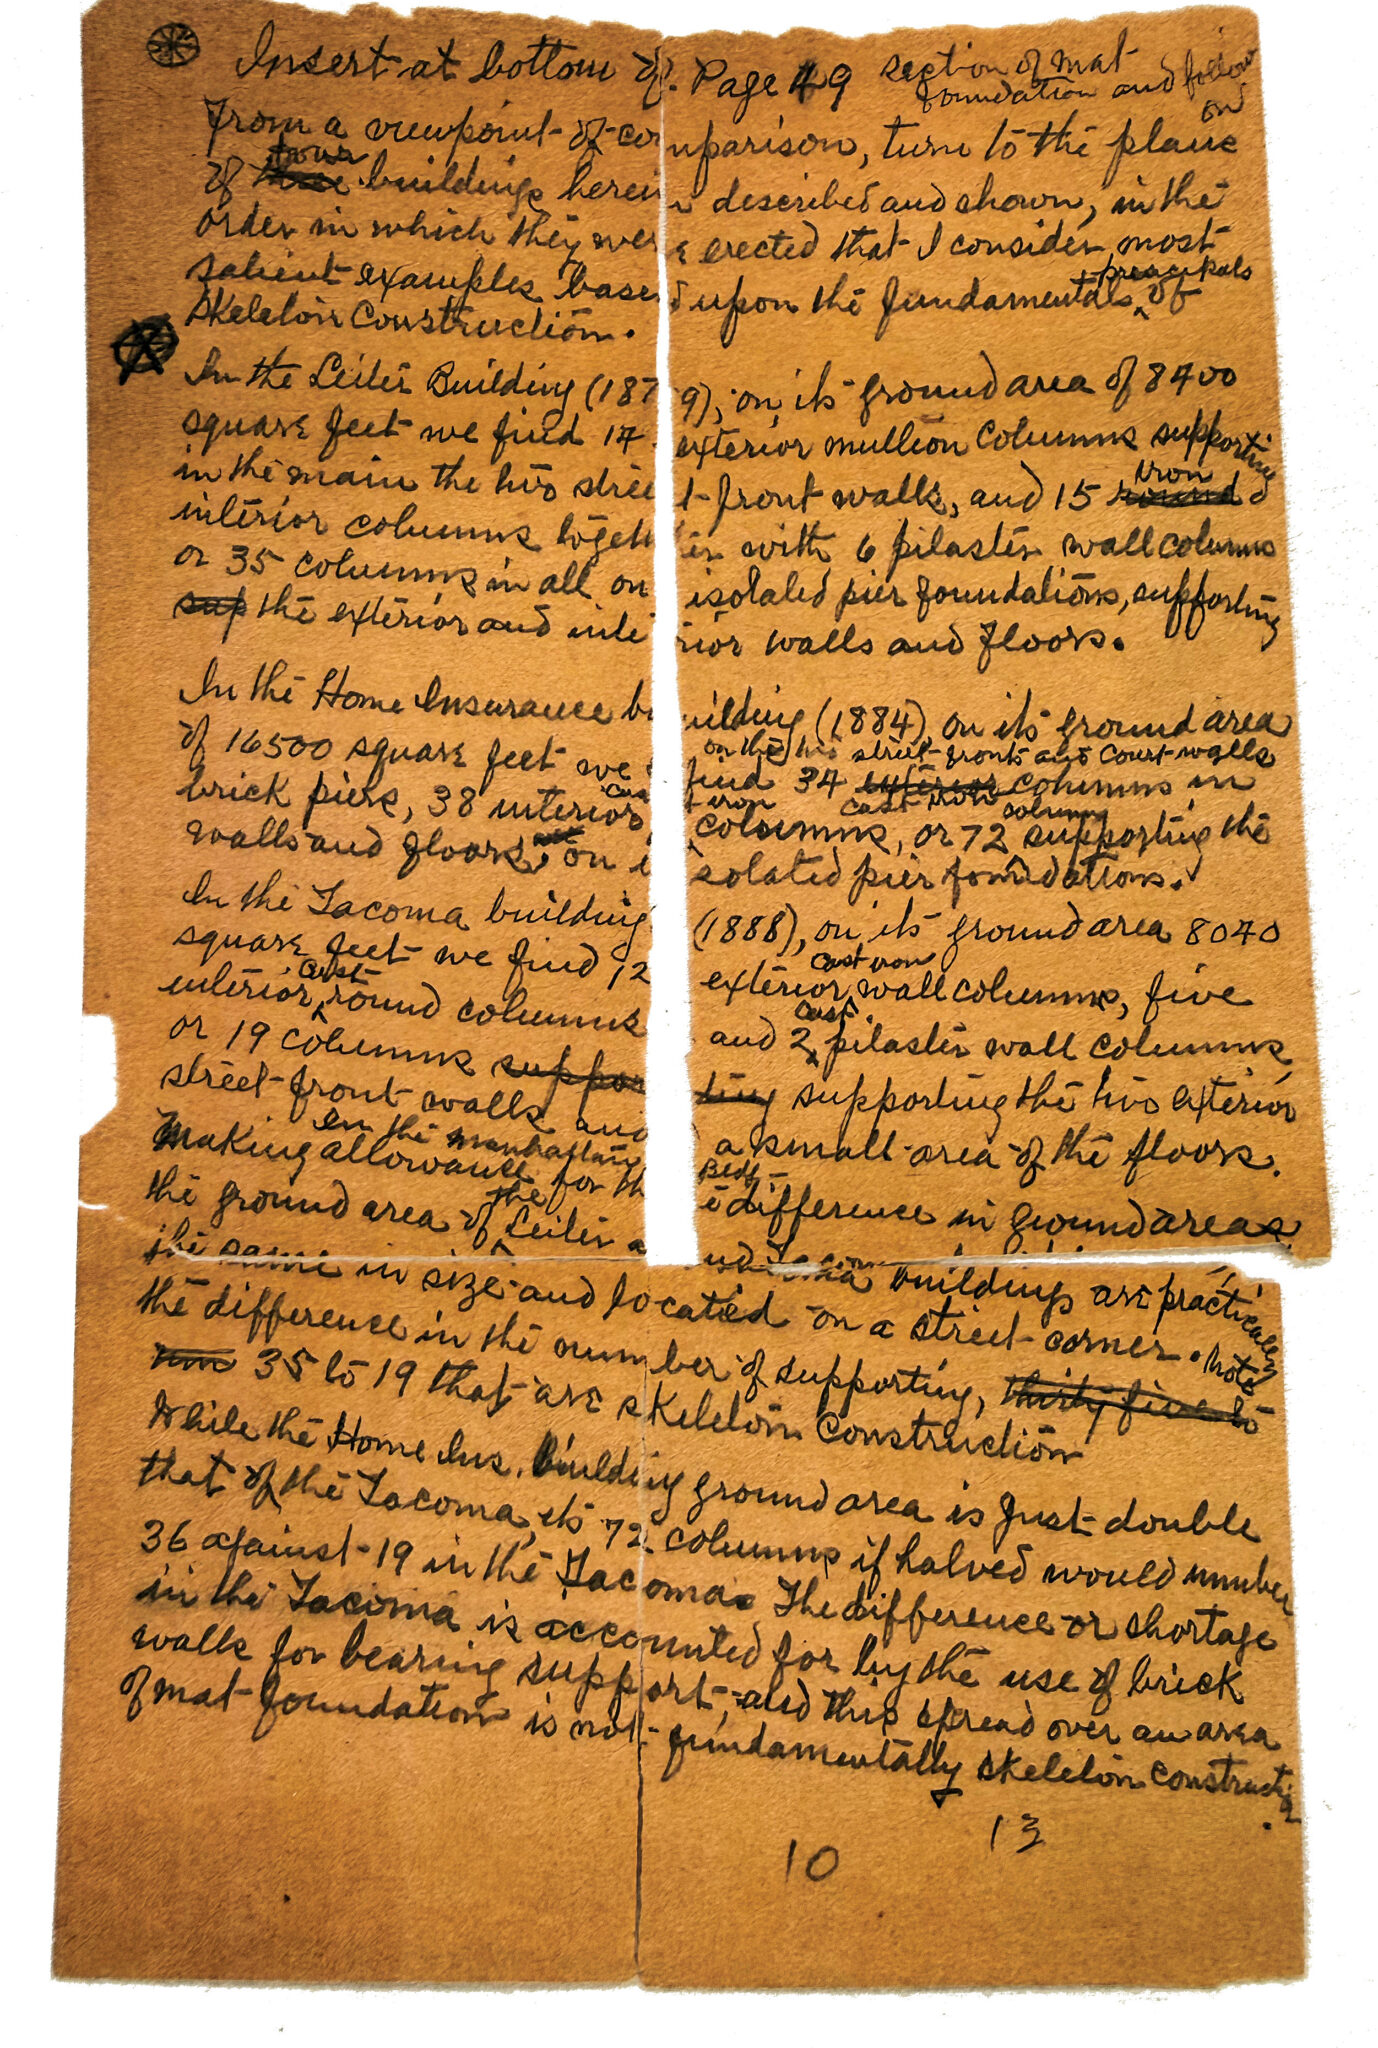 Insert at bottom of Page 49 section of mat
foundation and follow
on
From a viewpoint of comparison, turn to the plans
four
of three buildings herein described and shown, in the
order in which they were erected that I consider most
+ principals
salient examples based upon the fundamentals, of
Skeleton Construction.
In the Leiter Building (1879), on its ground area of 8400
square feet we find 14 exterior mullion columns supporting
iron
in the main the two street front walls, and 15 round
interior columns together with 6 pilaster wall columns
or 35 columns in all on isolated pier foundations, supporting
sup the exterior and interior walls and floors.
In the Home Insurance building (1884), on its ground area
on the two street fronts and court walls
of 16500 square feet we find 34 exterior columns in
cast iron cast iron column
brick piers, 38 interior columns, or 72 supporting the
walls and floors, on isolated pier foundations.
In the Tacoma building (1888), on its ground area 8040
cast iron
square feet we find 12 exterior wall columns, five
cast cast
interior, round columns and 2 pilaster wall columns
or 19 columns supporting supporting the two exterior
street front walls and a small area of the floors.
In the Manhattan Bldg -
Making allowance for the difference in ground areas
the
the ground area of Leiter and building are practically
the same in size and located on a street corner. Note
the difference in the number of supporting, thirty five to
35 to 19 that are skeleton construction
While the Home Ins. building ground area is just double
that of the Tacoma, its 72 columns if halved would number
36 against 19 in the Tacoma. The difference or shortage
in the Tacoma is accounted for by the use of brick
walls for bearing support, and this spread over an area
of mat foundation is not fundamentally skeleton construction.
10 13